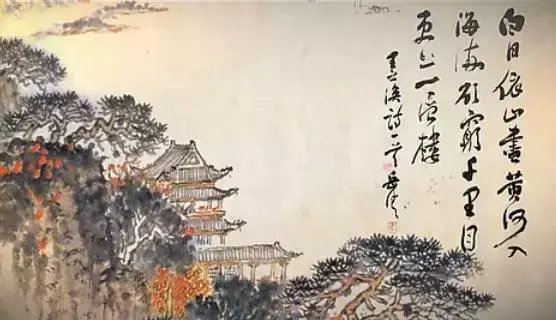 白日依山盡黃河入
海流欲窮千里目
更上一層樓
王之渙詩一首